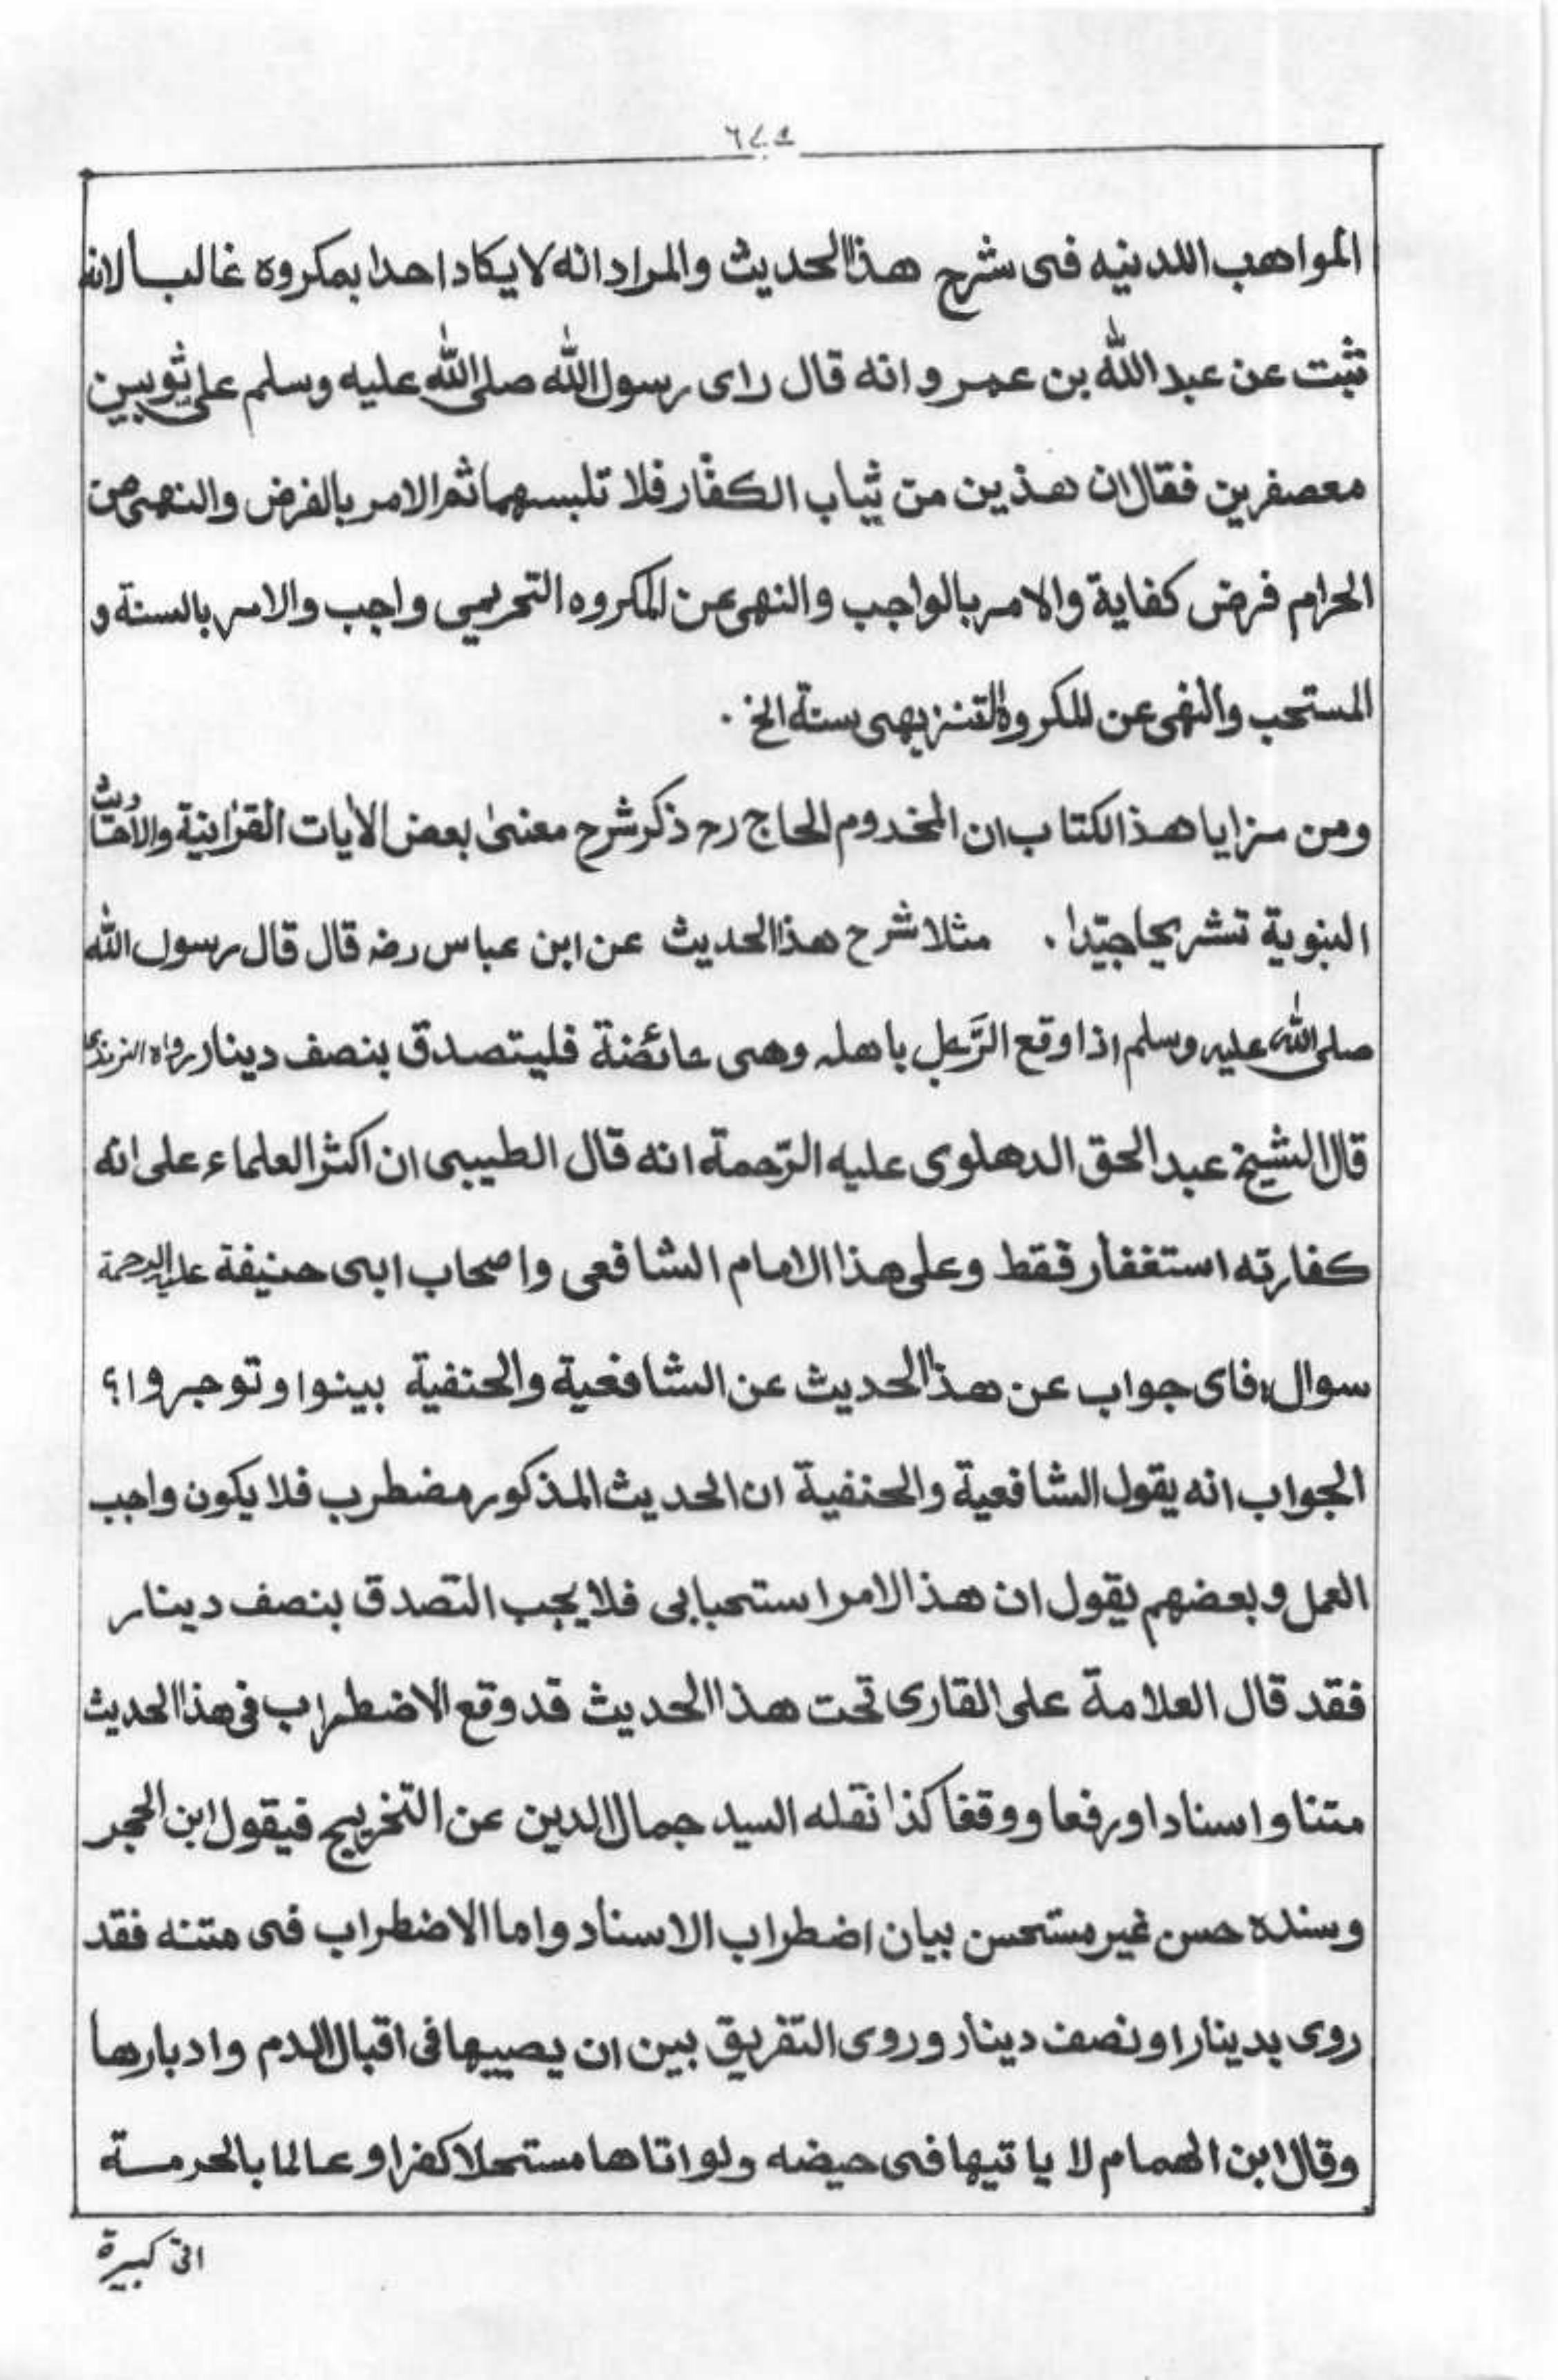 المواهب اللدنيه فى شرح هذا الحديث والمراد انه لا يكاد احدا بمكروه غالبا لانه
ثبت عن عبد الله بن عمرو انه قال راى رسول الله صلى الله عليه وسلم على ثوبين
معصفرين فقال ان هذين من ثياب الكفّار فلا تلبسهما ثم الامر بالفرض والنهى من
الحرام فرض كفاية والامر بالواجب والنهى عن المكروه التحريمى واجب والامر بالسنة و
المستحب والنهى عن المكروه التنزيهى سنة الخ .
ومن مزايا هذ الكتاب ان المخدوم الحاج رح ذكر شرح معنى بعض الآيات القرآنية والأحاديث
النبوية تشريحا جيّدا . مثلا شرح هذا الحديث عن ابن عباس رضه قال قال رسول الله
صلى الله عليه وسلم اذا وقع الرَّجل باهله وهى حائضة فليتصدق بنصف دينار رواه الترمذى
قال الشيخ عبد الحق الدهلوى عليه الرّحمة انه قال الطيبى ان اكثر العلماء على انه
كفارته استغفار فقط وعلى هذا الامام الشافعى واصحاب ابى حنيفة عليه الرحمة
سوال: فاى جواب عن هذا الحديث عن الشافعية والحنفية بينوا وتوجروا؟
الجواب انه يقول الشافعية والحنفية ان الحديث المذكور مضطرب فلا يكون واجب
العمل وبعضهم يقول ان هذ الامر استحبابى فلا يجب التصدق بنصف دينار
فقد قال العلامة على القارى تحت هذا الحديث قد وقع الاضطراب فى هذا الحديث
متنا واسنادا ورفعا ووقفا كذا نقله السيد جمال الدين عن التخريج فيقول ابن الحجر
وسنده حسن غير مستحسن بيان اضطراب الاسناد واما الاضطراب فى متنه فقد
روى بدينار او نصف دينار وروى التفريق بين ان يصيبها فى اقبال الدم وادبارها
وقال ابن الهمام لا ياتيها فى حيضه ولو اتاها مستحلا كفر او عالما بالحرمة
اتى كبيرة